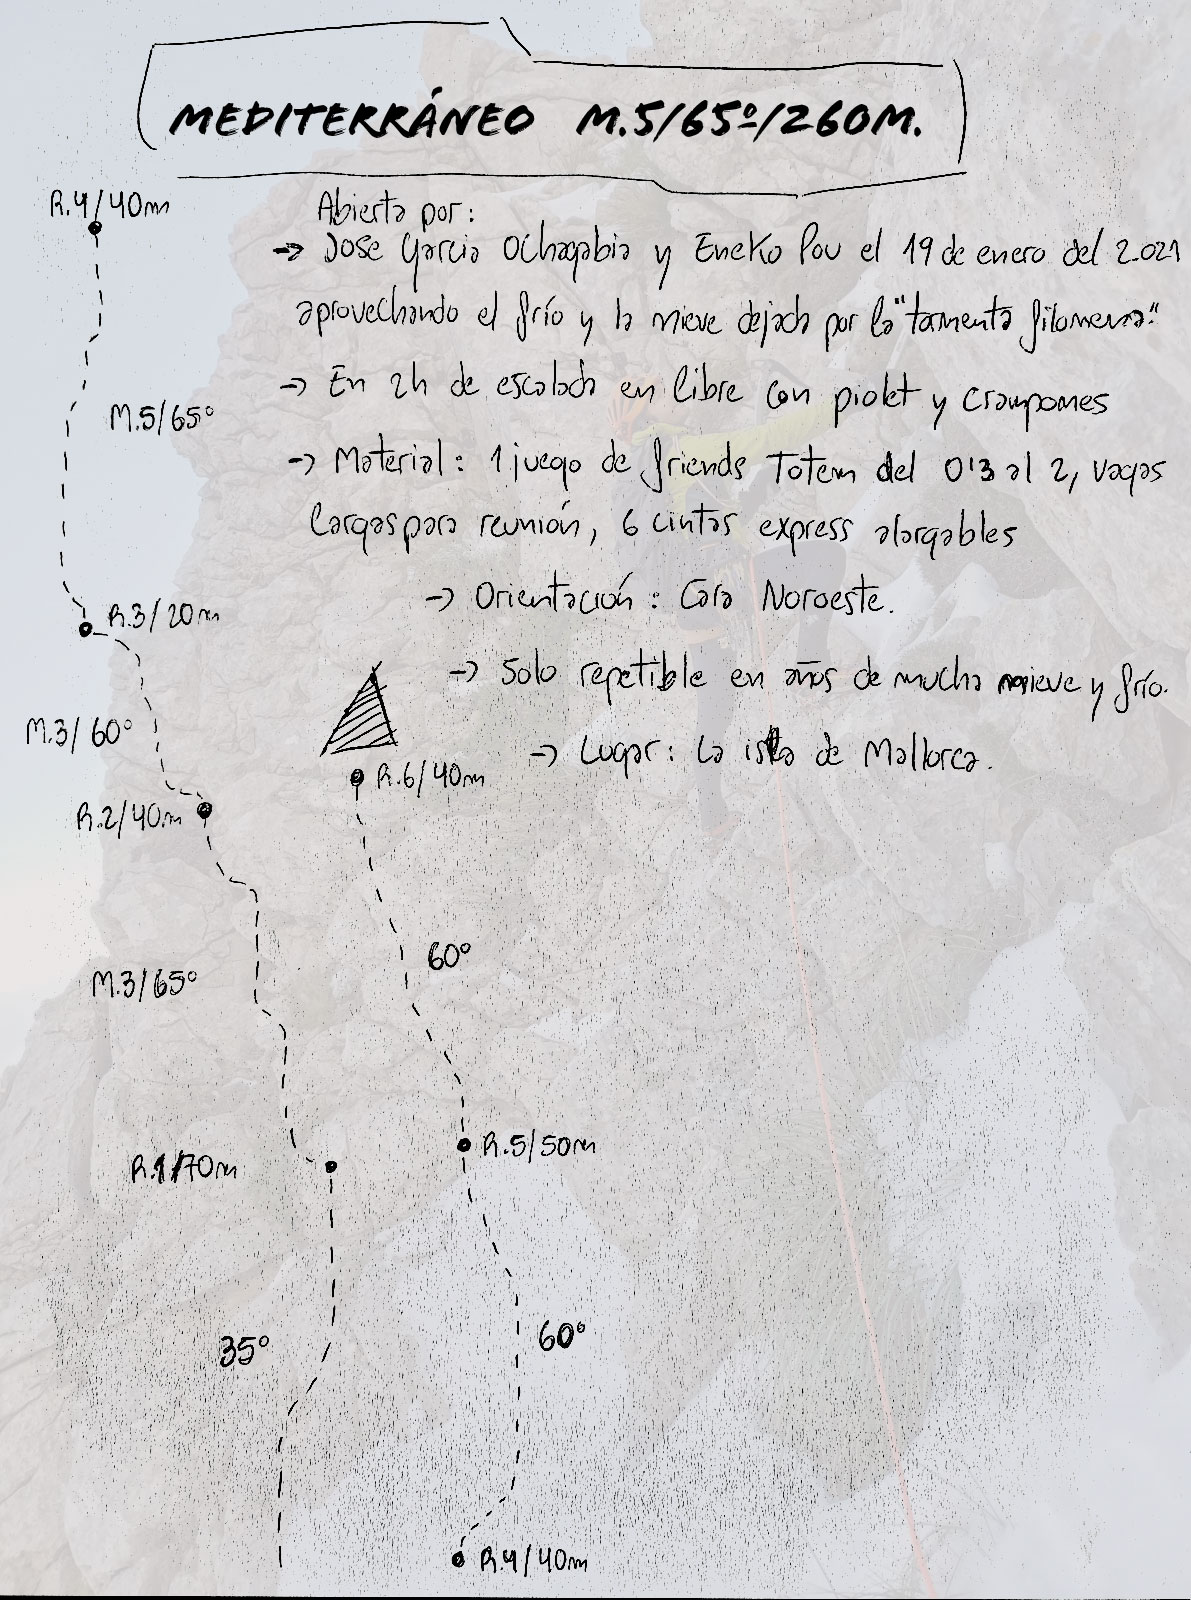 MEDITERRÁNEO M.5/65º/260M.
R.4/40m
Abierta por:
→ Jose Garcia Ochagabia y Eneko Pou el 19 de enero del 2.021
aprovechando el frío y la nieve dejada por la "tormenta filomena."
→ En 2h de escalada en libre con piolet y crampones
M.5/65º
→ Material: 1 juego de friends Totem del 0'3 al 2, vagas
largas para reunión, 6 cintas express alargables
→ Orientación: Cara Noroeste.
R.3/20m
→ Solo repetible en años de mucha nieve y frío.
M.3/60º
→ Lugar: La isla de Mallorca.
R.6/40m
R.2/40m
60º
M.3/65º
R.5/50m
R.1/70m
60º
35º
R.4/40m